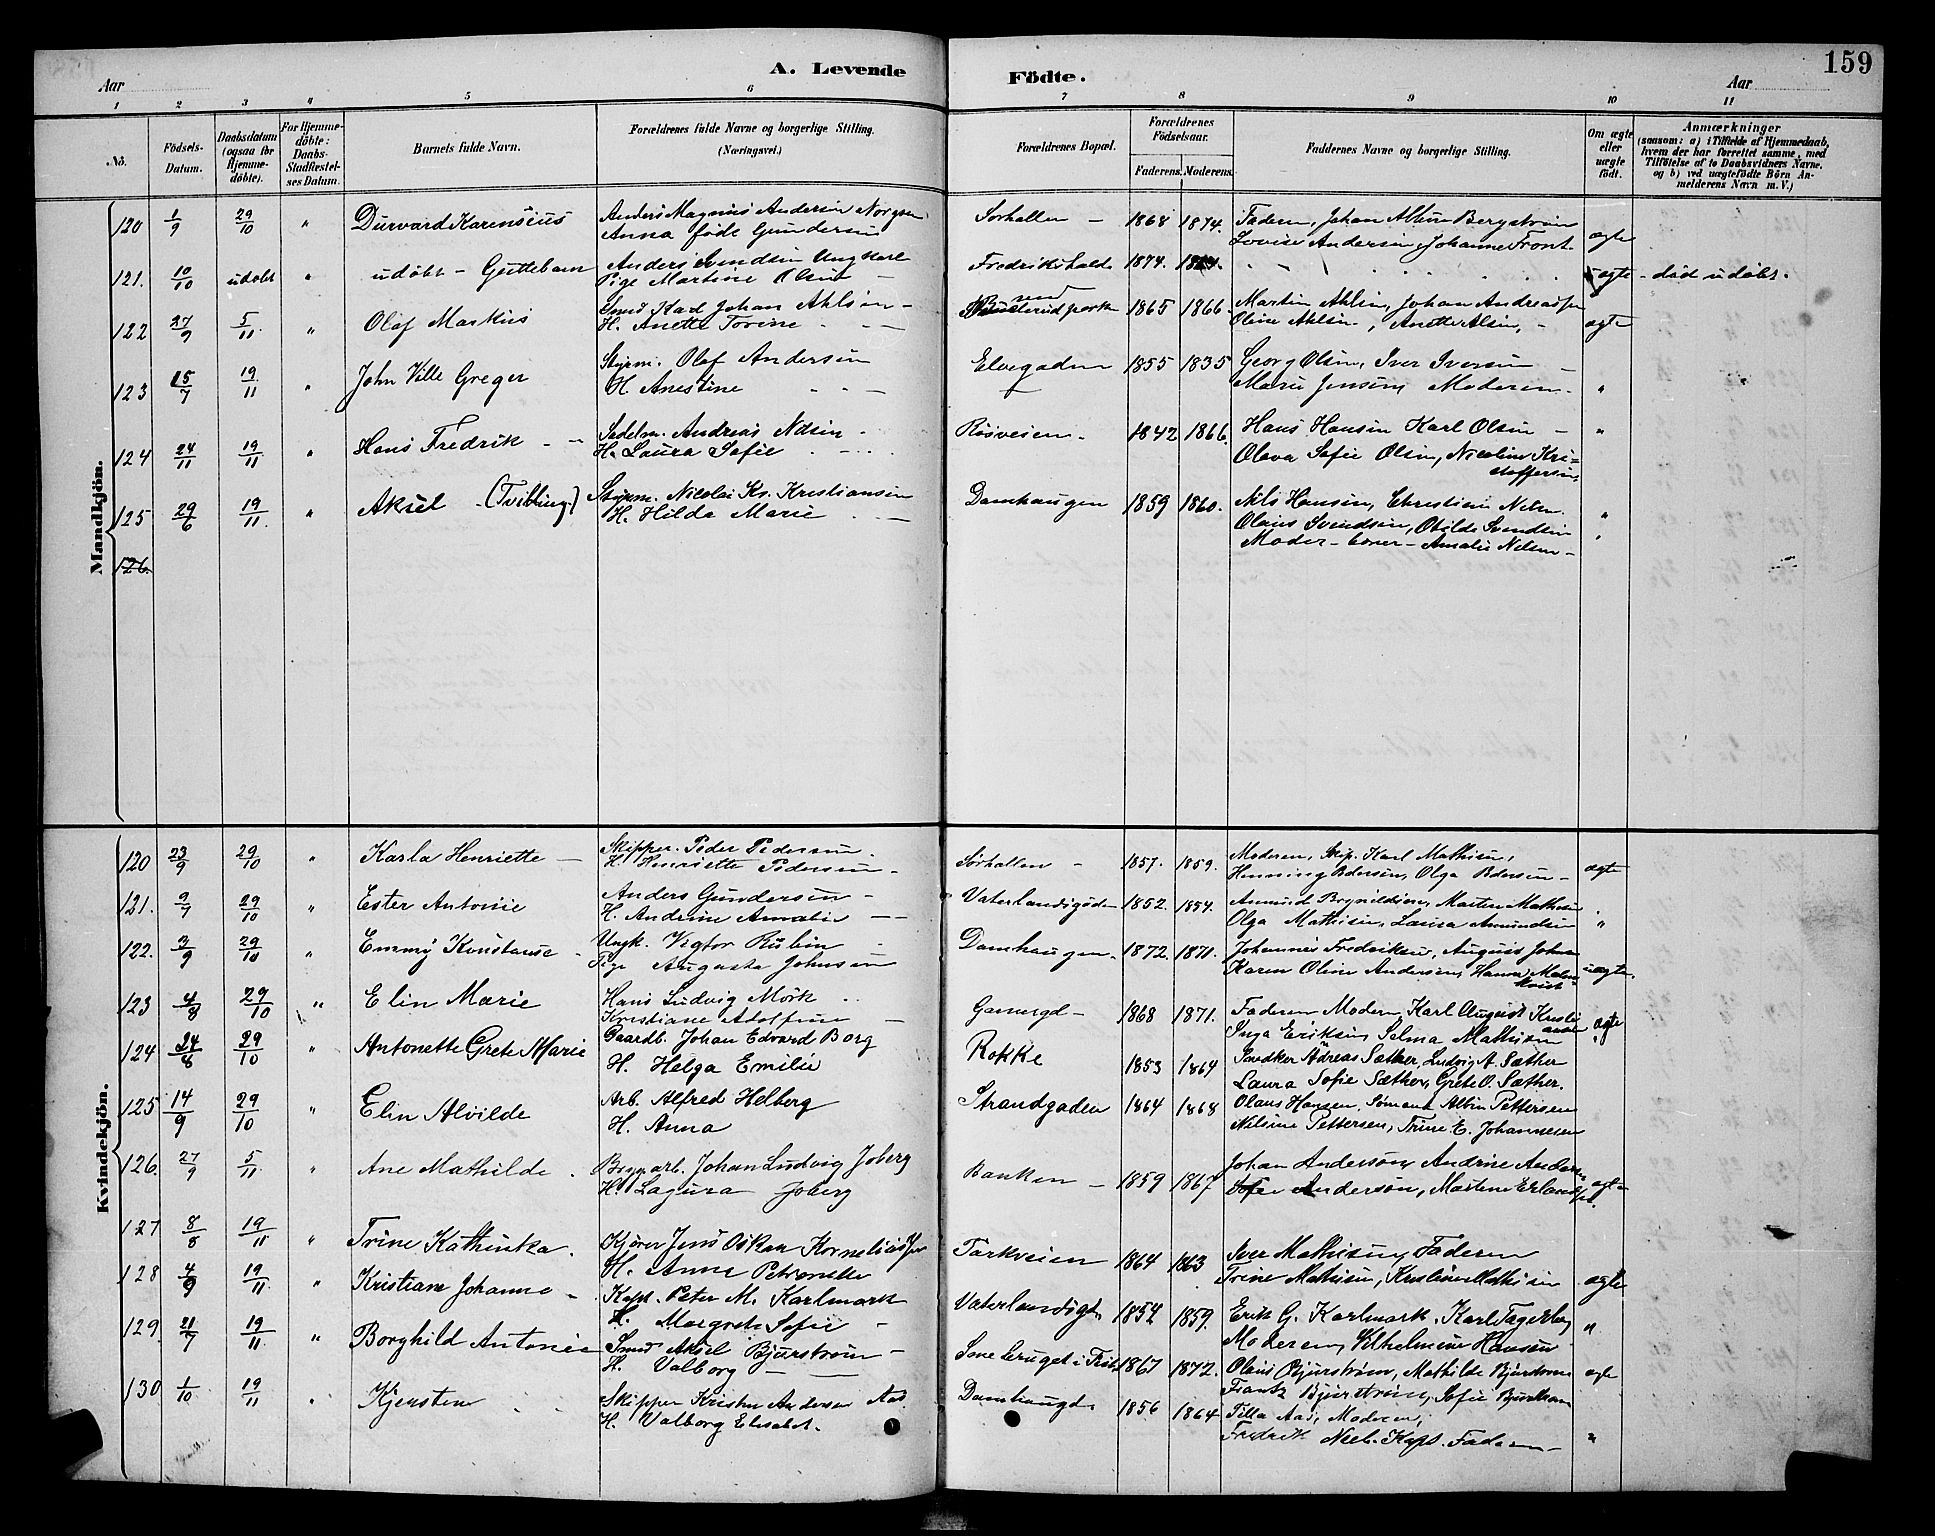 159
A. Levende Födte.
Aar Aar
1 2 3 4 5 6 7 8 9 10 11
No.
Födsels-Datum.
Daabsdatum (ogsaa for Hjemme-döbte).
For Hjemme-döbte: Daabs-Stadfestel-ses Datum.
Barnets fulde Navn.
Forældrenes fulde Navne og borgerlige Stilling. (Næringsvei.)
Forældrenes Bopæl.
Forældrenes Födselsaar.
Faderens. Moderens.
Faddernes Navne og borgerlige Stilling.
Om ægte eller uægte födt.
Anmærkninger
(saasom: a) i Tilfælde af Hjemmedaab, hvem der har forrettet samme, med Tilföielse af to Daabsvidners Navne, og b) ved uægtefödte Börn An-melderens Navn m. V.)
Mandkjön.
120 1/9 29/10 " Durvard Karensius Anders Magnus Andersen Anna föde Gundersen Sorhallen – 1868 1874. Faderen, Johan Albin Bergström Lovise Andersen, Johanne Front. ægte
121. 10/10 udöbt " udöbt – Guttebarn Anders Svendsen Ungkarl Pige Martine Olsen – Fredrikshald 1874. uægte – död udöbt.
122 27/9 5/11. " Olaf Markus Smed Karl Johan Ahlsen – H. Anette Torine – 1865 1866. Martin Ahlin, Johan Andreasen Oline Ahlsen, Anette Alsen, – ægte
123 15/7 19/11 " John Ville Greger Styrm. Olaf Andersen H. Anestine – Elvegaden 1855 1835 Georg Olsen, Iver Iversen – Marie Jensen, Moderen –. "
124 24/11 19/11 " Hans Fredrik – Sadelm. Andreas H. Laura Sofie – Rösveien – 1842 1866. Hans Hansen Karl Olsen – Olava Sofie Olsen, Nicoline Kri=stoffersen, "
125 29/6 19/11. " Aksel – (Tvilling.) Styrm. Nicolai Kr. Kristiansen H. Hilda Marie – Damhaugen 1859 1860. Nils Hansen, Christian Olaus Svendsen, Otilde Svendsen Moder – – Amalie Nelsen – "
126.
Kvindekjön.
120 23/9 29/10 " Karla Henriette – Skipper. Peder Pedersen. H. Henriette Pedersen – Sörhallen – 1857. 1859. Moderen, Skip. Karl Mathisen, Henning Pedersen, Olga – ægte
121. 9/7 29/10 " Ester Antonie Anders Gundersen – H. Andrine Amalie – Vaterlandsgaden 1852. 1854. Amund Brynildsen, Martin Mathisen Olga Mathisen, Laura Amundsen "
122. 3/9 29/10 " Emmy Konstanse – Ungk. Victor Rubin – Pige Augusta Johnsen Damhaugen. 1872. 1871. Johannes Fredriksen, August Johan Karen Oline Andersen, Hanna Malmkvist uægte.
123 4/8 29/10 " Elin Marie Hans Ludvig Mörk Kristiane Adolfine – 1868 1871. Faderen Moderen, Karl August Kristiansen Inga Eriksen, Selma Mathisen ægte
124 24/8 29/10 " Antonette Grete Marie Gaardb. Johan Edvard Borg H. Helga Emilie Rokke 1853 1864 Snedker Adreas Sæther, Ludvig A. Sæther Laura Sofie Sæther, Grete O. Sæther.
125 14/9 29/10 " Elin Alvilde Arb. Alfred Helberg H. Anna Strandgaden 1864 1868 Olaus Hansen, Sömand Albin Pettersen Nilsine Pettersen, Trine E. Johannesen
126. 27/9 5/11. " Ane Mathilde. Johan Ludvig Joberg H. Lagura Joberg Banken – 1859 1867 Johan Andersen, Andrine Andersen Sofie Andersen, Martine Erlandsen ægte
127 8/8 19/11 " Trine Kathinka. Kjörer Jens Oskar Korneliussen H. Anna Petronelle Torkveien 1864 1863 Iver Mathisen, Faderen Trine Mathisen, Kristine Mathisen ægte
128 4/9 19/11. " Kristiane Johanne – Kapt. Peter M. Karlmark H. Margrete Sofie – Vaterlandsgd. 1854 1859. Erik G. Karlmark. Karl Fagerberg Moderen, Vilhelmine Hansen "
129. 21/7 19/11 " Borghild Antonie Smed Aksel Bjurström – H. Valborg – 1867 1872. Olaus Bjurström, Mathilde Bjurström Frantz Bjurström, Sofie Bjurström ægte
130 1/10 19/11 " Kjersten Skipper Kristen Andersen Aas H. Valborg Elisabet. Damhaugd. 1856 1864 Tilla Aas, Moderen, Fredrik Kapt. Faderen – "